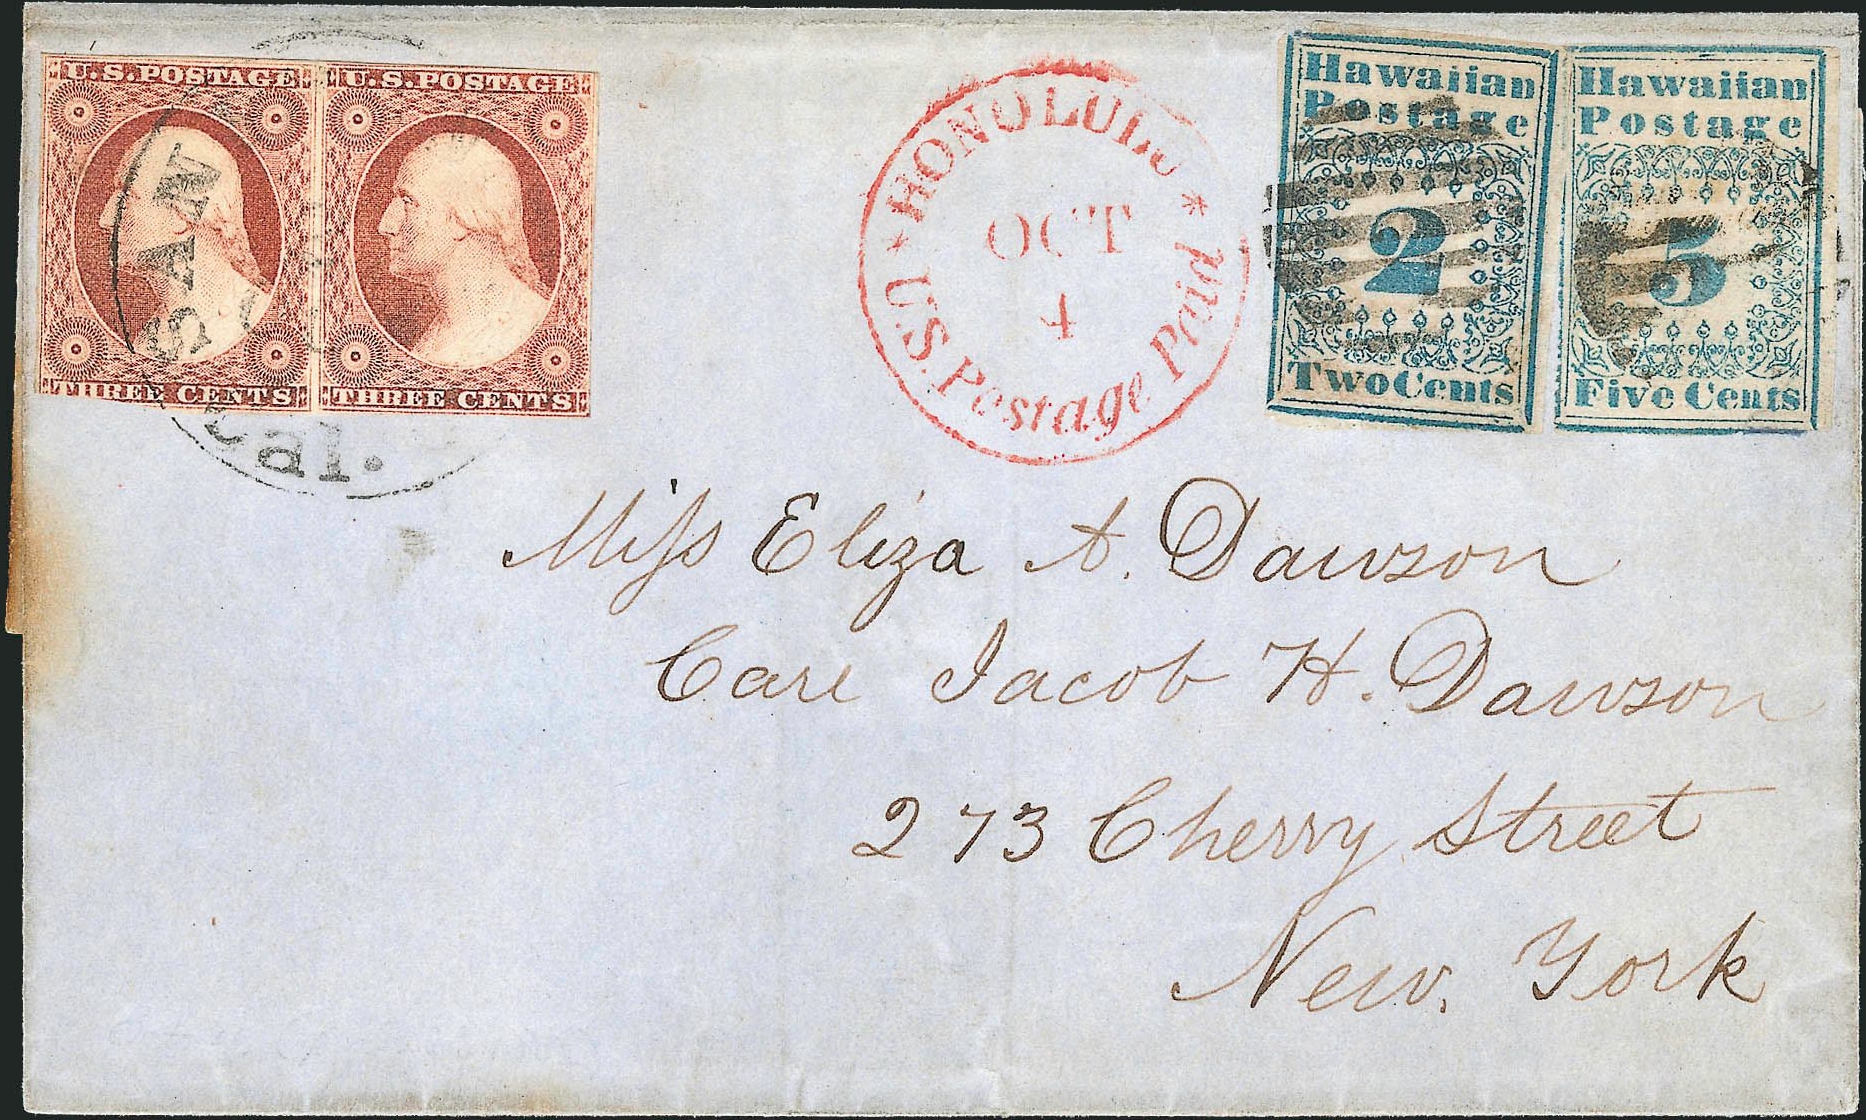 U.S.POSTAGE
THREE CENTS
U.S.POSTAGE
THREE CENTS
SAN
Cal.
★ HONOLULU ★
U.S. Postage Paid
OCT
4
Hawaiian
Postage
2
Two Cents
Hawaiian
Postage
5
Five Cents
Miss Eliza A. Dawson
Care Jacob H. Dawson
273 Cherry Street
New. York